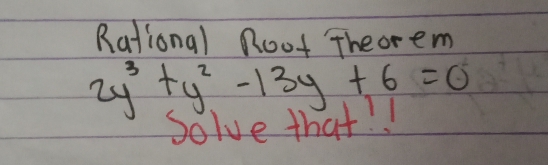 Rational Root Theorem
2y³ + y² - 13y + 6 = 0
Solve that!!